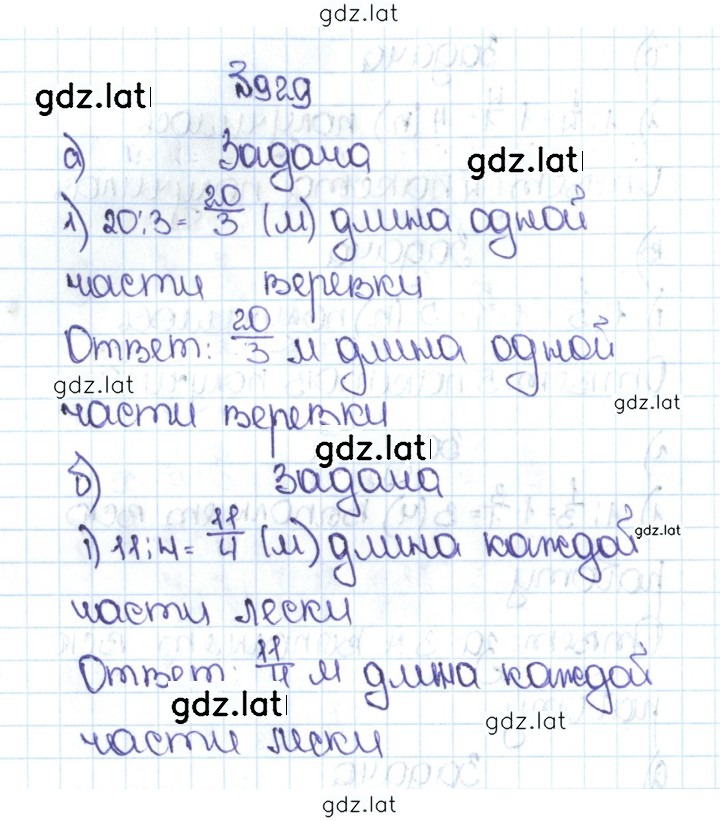 gdz.lat
№929
gdz.lat
а) Задача
gdz.lat
1) 20:3=20/3 (м) длина одной
части веревки
Ответ: 20/3 м длина одной
gdz.lat
gdz.lat
части веревки
gdz.lat
б) Задача
gdz.lat
1) 11:4=11/4 (м) длина каждой
части лески
Ответ: 11/4 м длина каждой
gdz.lat
gdz.lat
части лески
gdz.lat